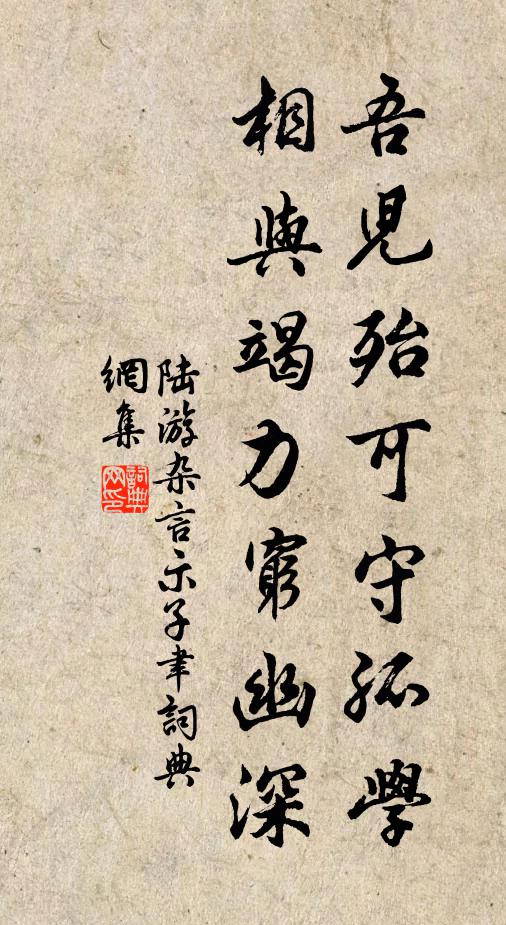 吾兒殆可守孤學
相與竭力窮幽深
陆游杂言示子聿詞典
網集
詞典
网印